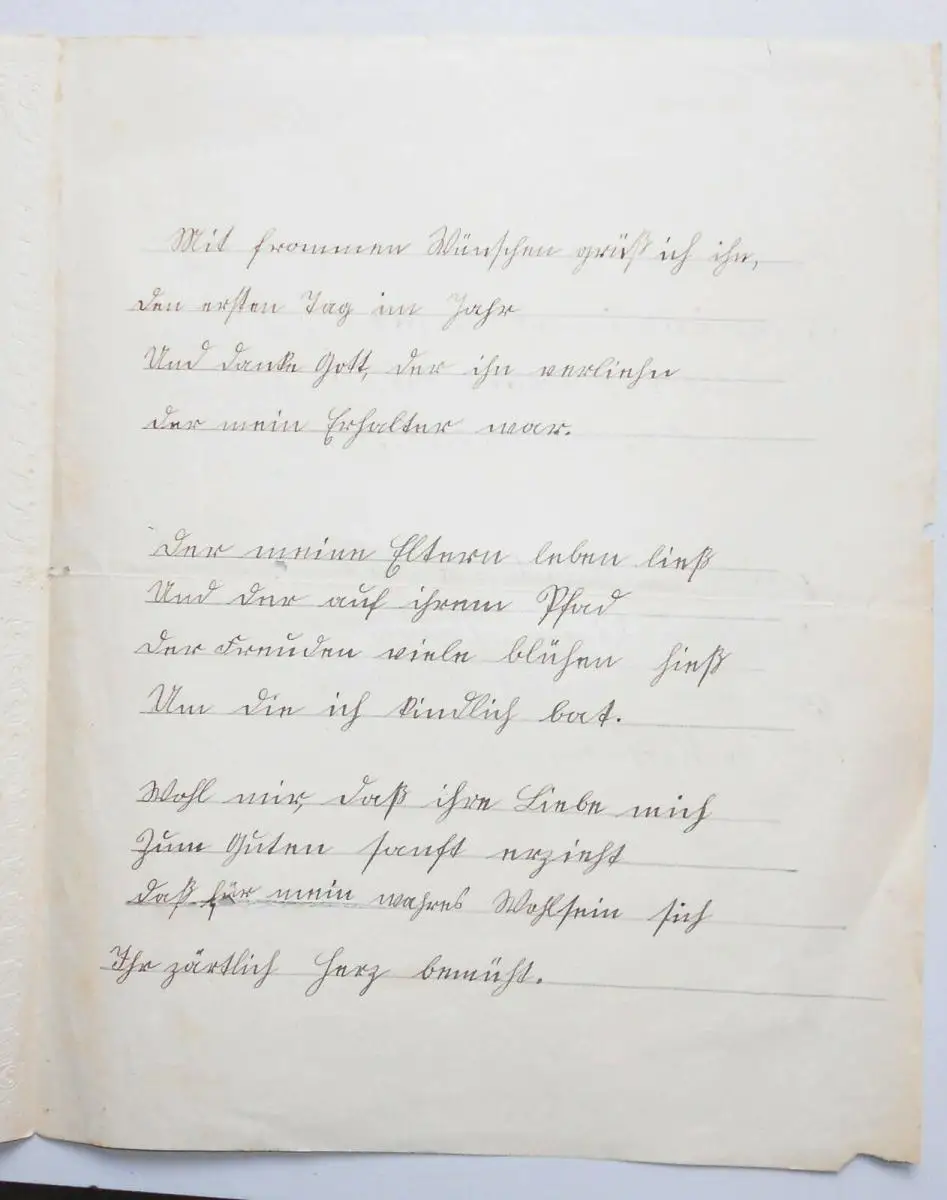 Mit frommen Wünschen grüß ich ihn,
den ersten Tag im Jahr
Und danke Gott, der ihn verliehn
der mein Erhalter war.
Der meine Eltern leben ließ
Und der auf ihrem Pfad
der Freuden viele blühen hieß
Um die ich kindlich bat.
Wohl mir, daß ihre Liebe mich
Zum Guten sanft erzieht
daß für mein wahres Wohlsein sich
Ihr zärtlich Herz bemüht.